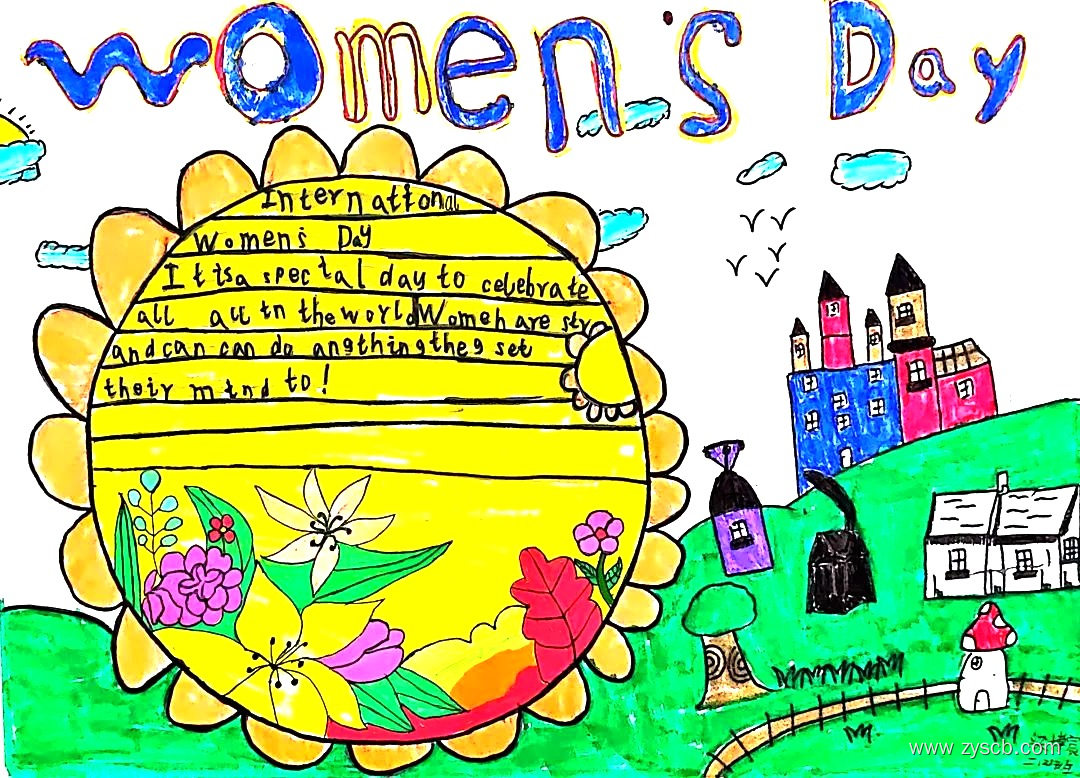 women's Day
International
Women's Day
It is a special day to celebrate
all all in the world Women are str
and can can do angthing theg set
their mind to!
www.zyscb.com